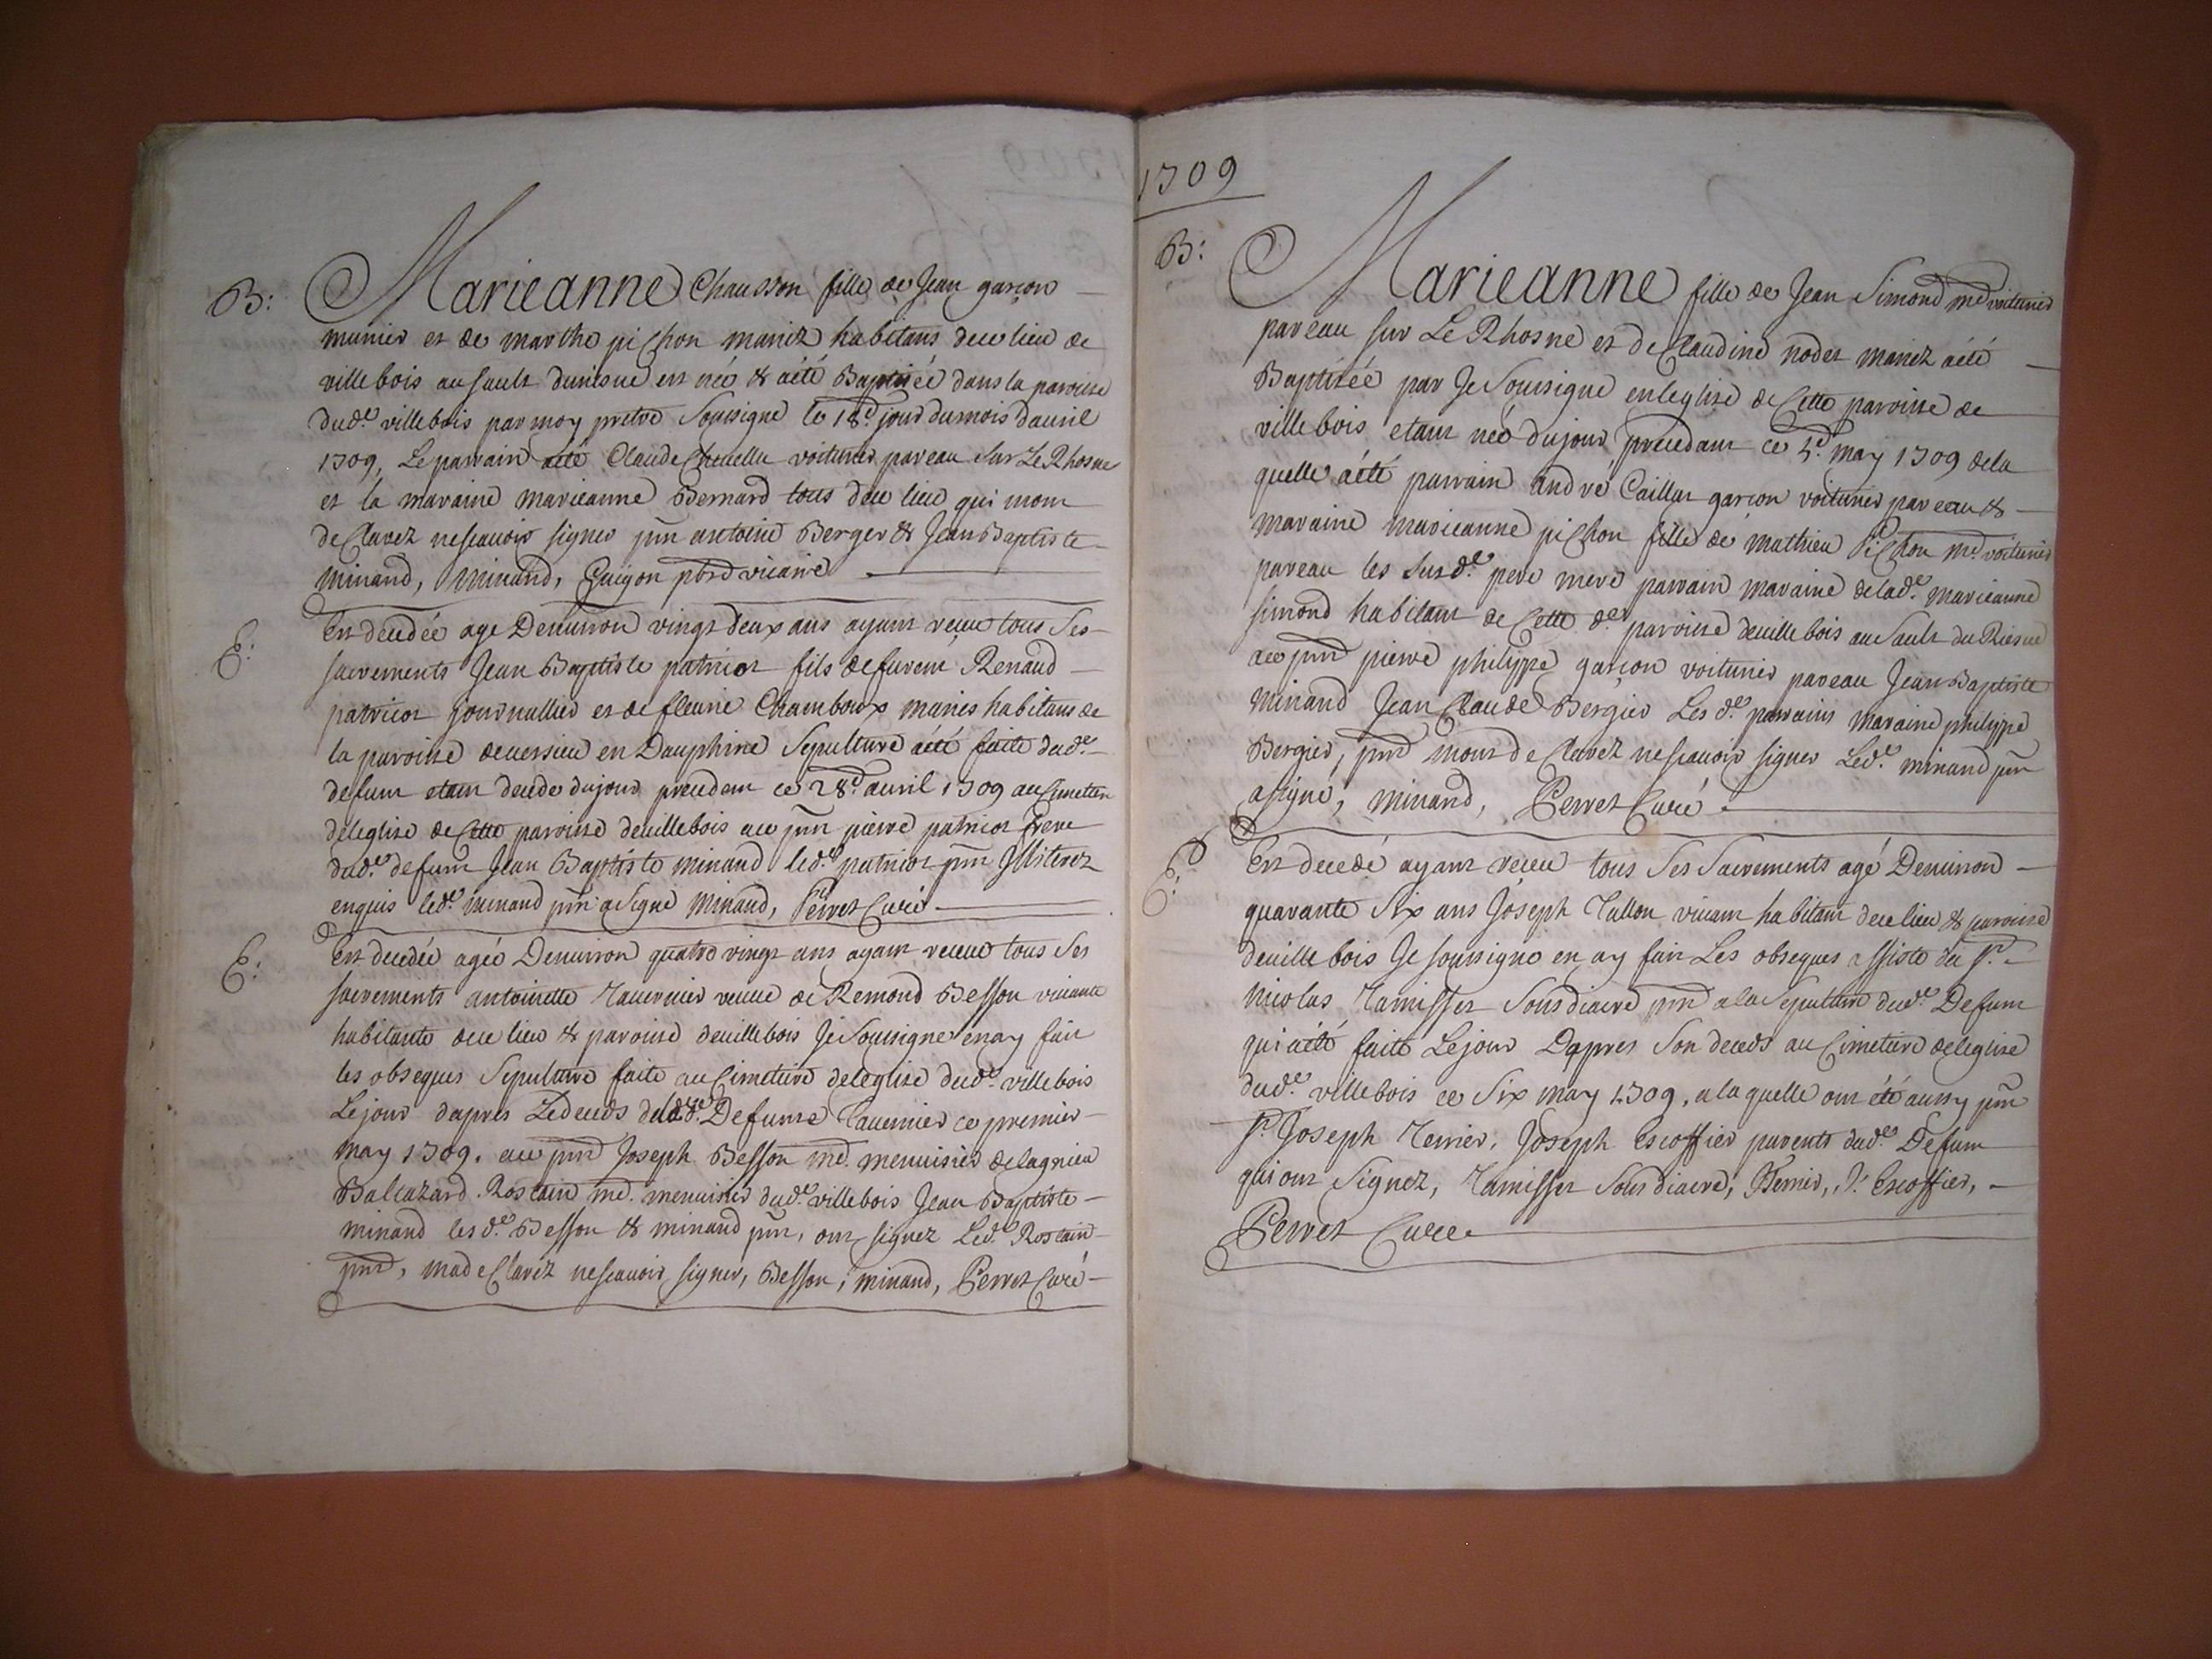 B: Marieanne Chausson fille de Jean garcon
munier et de marthe pichon mariez habitans dece lieu de
villebois au sault durosne est née & aété Baptisée dans la paroisse
dude villebois par moy pretre Soussigne le 18e jour dumois dauril
1709, Le parrain aété Claude Cheuellu voiturier pareau sur Le Rhosne
et la maraine marieanne Bernard tous dece lieu qui mont
declarez nescauoir signer pnt antoine Berger & Jean Baptiste
minand, Minand, Guigon pbre vicaire
E: Est decedée age Denuiron vingt deux ans ayant receu tous Ses
sacrements Jean Baptiste patricot fils defuront Renaud
patricot journallier et de fleurie Chamboux mariés habitans de
la paroisse deuersieu en Dauphine Sepulture aété faite dude
defunt etant decede dujour precedent ce 28e auril 1709 au Cimetiere
deleglise de Cette paroisse deuillebois auec pnt pierre patricot frere
dude defunt Jean Baptiste minand lede patricot pnt Illiterez
enquis lede minand pnt asigne Minand, Perret Curé
E: Est decedée agée Denuiron quatre vingt ans ayant receue tous Ses
sacrements antoinette Tauernier veuue de Remond Besson viuante
habitante dece lieu & paroisse deuillebois Je Soussigne enay fait
les obseques Sepulture faite au Cimetiere deleglise dude villebois
Lejour dapres Ledeceds delade Defunte Tauernier ce premier
may 1709. auec pnt Joseph Besson md. menuisier delagnieu
Baltazard Rostain md. menuisier dude villebois Jean Baptiste
minand lesde Besson & minand pnt, ont signez Lede Rostain
pnt, madeclarez nescauoir signer, Besson, minand, Perret Curé
1709
B: Marieanne fille de Jean Simond md voiturier
pareau sur Le Rhosne et de Claudine nodet mariez aété
Baptisée par Je Soussigne enleglise de Cette paroisse de
villebois etant née dujour precedant ce 5e may 1709 dela
quelle aété parrain andré Caillat garcon voiturier pareau &
maraine marieanne pichon fille de mathieu Pichon md voiturier
pareau les susde pere mere parrain maraine delade marieanne
simond habitant de Cette de paroisse deuillebois au Sault du Rosne
auec pnt pierre philippe garcon voiturier pareau Jean Baptiste
minand Jean Claude Bergier Les de parrains maraine philippe
Bergier, pnt mont declarez nescauoir signer Lede minand pnt
asigné, minand, Perret Curé
E: Est decedé ayant receu tous Ses Sacrements agé Denuiron
quarante Six ans Joseph Tallon viuant habitant dece lieu & paroisse
deuillebois Je soussigne en ay fait Les obseques assiste du Sr
Nicolas Tamisser Sousdiacre pnt ala Sepulture dude Defunt
qui aété faite Lejour Dapres Son deceds au Cimetiere deleglise
dude villebois ce Six may 1709, alaquelle ont été aussy pnt
Sr Joseph Terrier, Joseph Escoffier parents dude Defunt
qui ont Signez, Tamisser Sousdiacre, Terrier, J. Escoffier,
Perret Curé